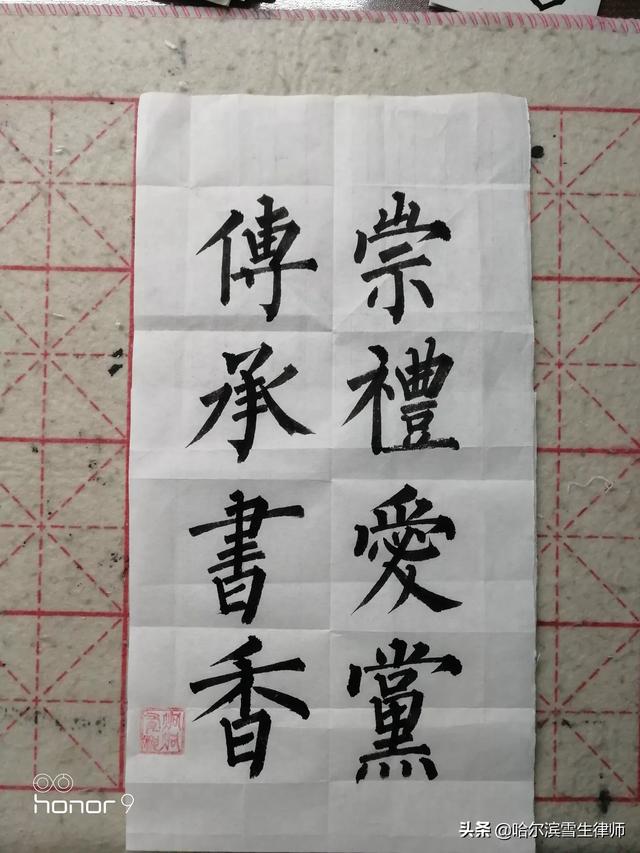 崇禮愛黨
傳承書香
honor 9
头条 @哈尔滨雪生律师